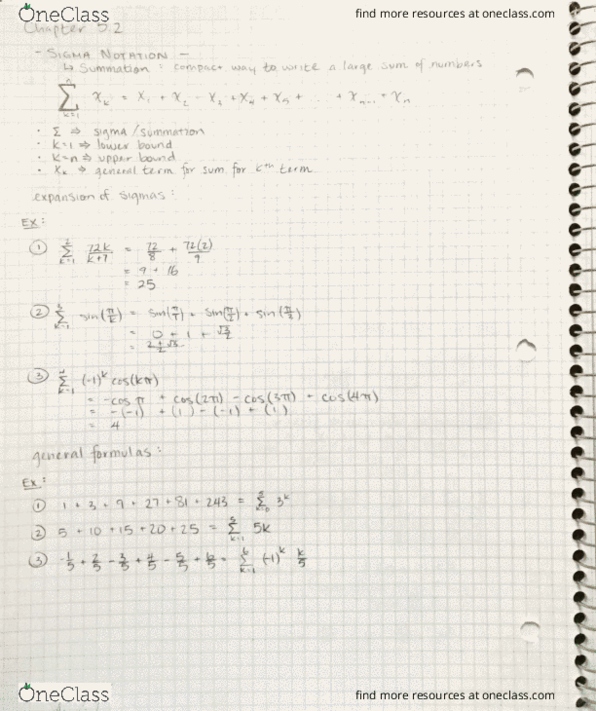 OneClass
find more resources at oneclass.com
Chapter 5.2
- SIGMA NOTATION -
↳ Summation : compact way to write a large sum of numbers
n Σ k=1 xₖ = x₁ + x₂ + x₃ + x₄ + x₅ + ... + xₙ₋₁ + xₙ
• Σ ⇒ sigma/summation
• k=1 ⇒ lower bound
• k=n ⇒ upper bound
• xₖ ⇒ general term for sum for kᵗʰ term
expansion of sigmas :
Ex :
① 2 Σ k=1 72k/k+7 = 72/8 + 72(2)/9
= 9 + 16
= 25
② 3 Σ k=1 sin(π/k) = sin(π/1) + sin(π/2) + sin(π/3)
= 0 + 1 + √3/2
= 2+√3/2
③ 4 Σ k=1 (-1)ᵏ cos(kπ)
= -cos π + cos(2π) - cos(3π) + cos(4π)
= -(-1) + (1) - (-1) + (1)
= 4
general formulas :
Ex :
① 1 + 3 + 9 + 27 + 81 + 243 = 5 Σ k=0 3ᵏ
② 5 + 10 + 15 + 20 + 25 = 5 Σ k=1 5k
③ -1/5 + 2/5 - 3/5 + 4/5 - 5/5 + 6/5 = 6 Σ k=1 (-1)ᵏ k/5
OneClass
find more resources at oneclass.com